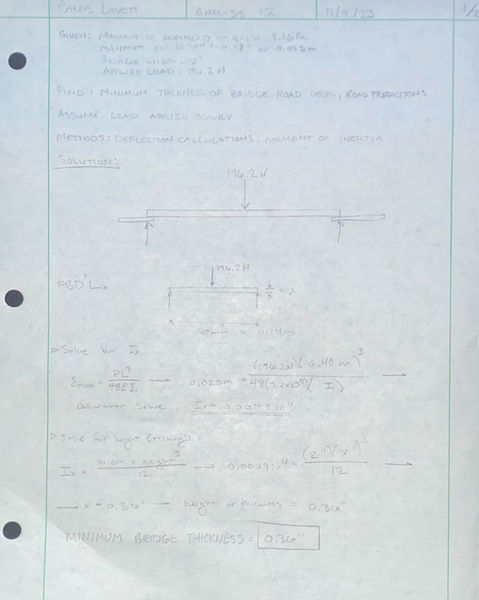 CALEB LOVETT ANALYSIS 12 11/9/23 1/2
GIVEN: MODULUS OF ELASTICITY OF
MAXIMUM DEFLECTION: OR 0.025m
BRIDGE WIDTH: 2"
APPLIED LOAD: 196.2N
FIND: MINIMUM THICKNESS OF BRIDGE ROAD DECK, ROAD PREDICTIONS
ASSUME: LOAD APPLIED SLOWLY
METHODS: DEFLECTION CALCULATIONS, MOMENT OF INERTIA
SOLUTION:
196.2N
196.2N
FBD Y X
= 0.14m
Solve for Ix
δmax = PL³/48EI → 0.025m = (196.2N)( m)³/48( )(I)
Calculator solve, Ix = 0.0079 in⁴
Solve for height (rectangle)
Ix = width × height³/12 → 0.0079in⁴ = (2")(x")³/12 →
→ x = 0.36" → height or thickness = 0.36"
MINIMUM BRIDGE THICKNESS = 0.36"